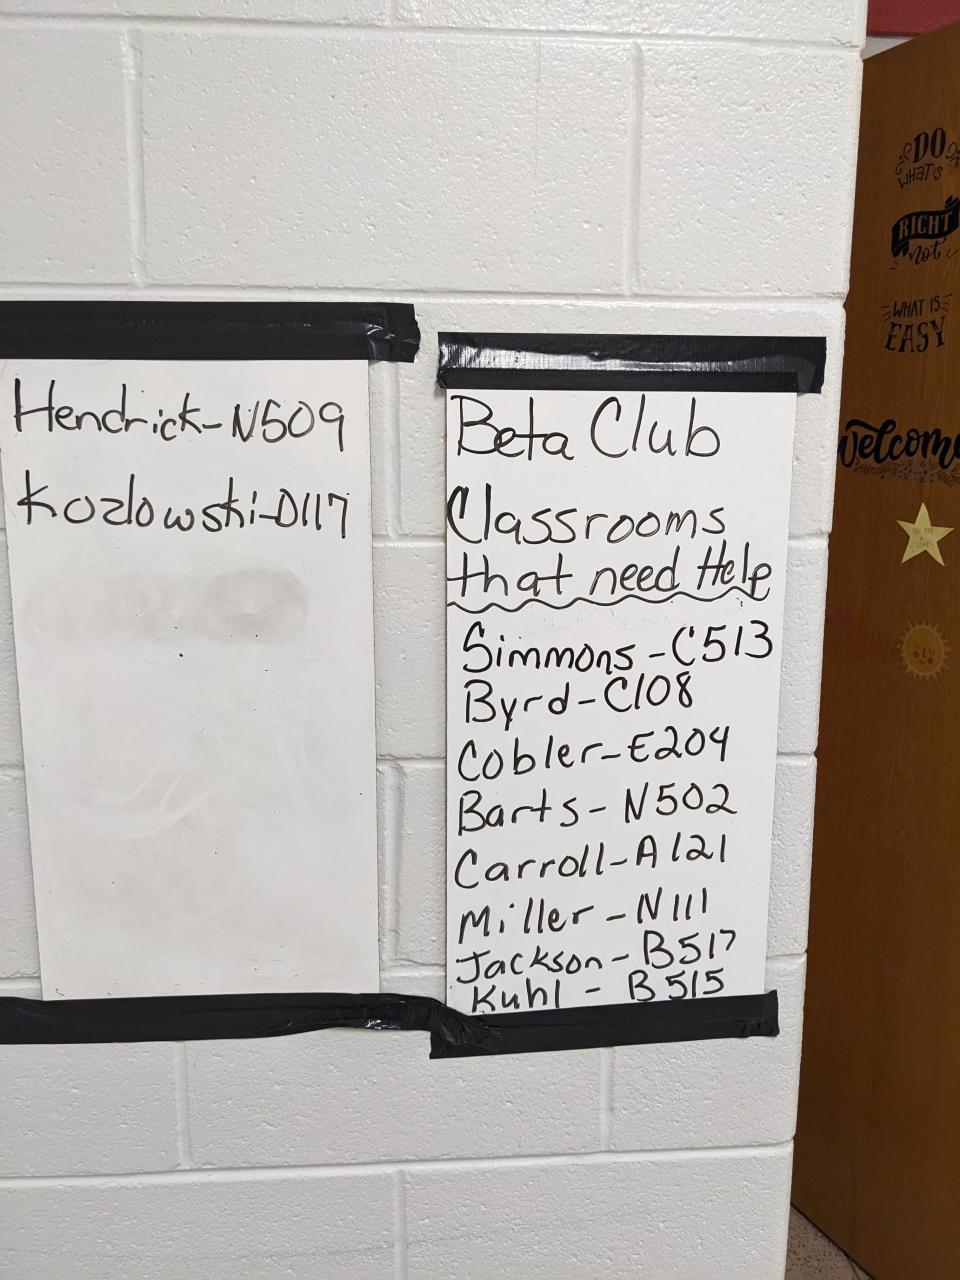 Hendrick-N509
Kozlowski-D117
Beta Club
Classrooms
that need Help
Simmons-C513
Byrd-C108
Cobler-E204
Barts-N502
Carroll-A121
Miller-N111
Jackson-B517
Kuhl-B515
DO
WHAT IS
RIGHT
not
WHAT IS
EASY
Welcome